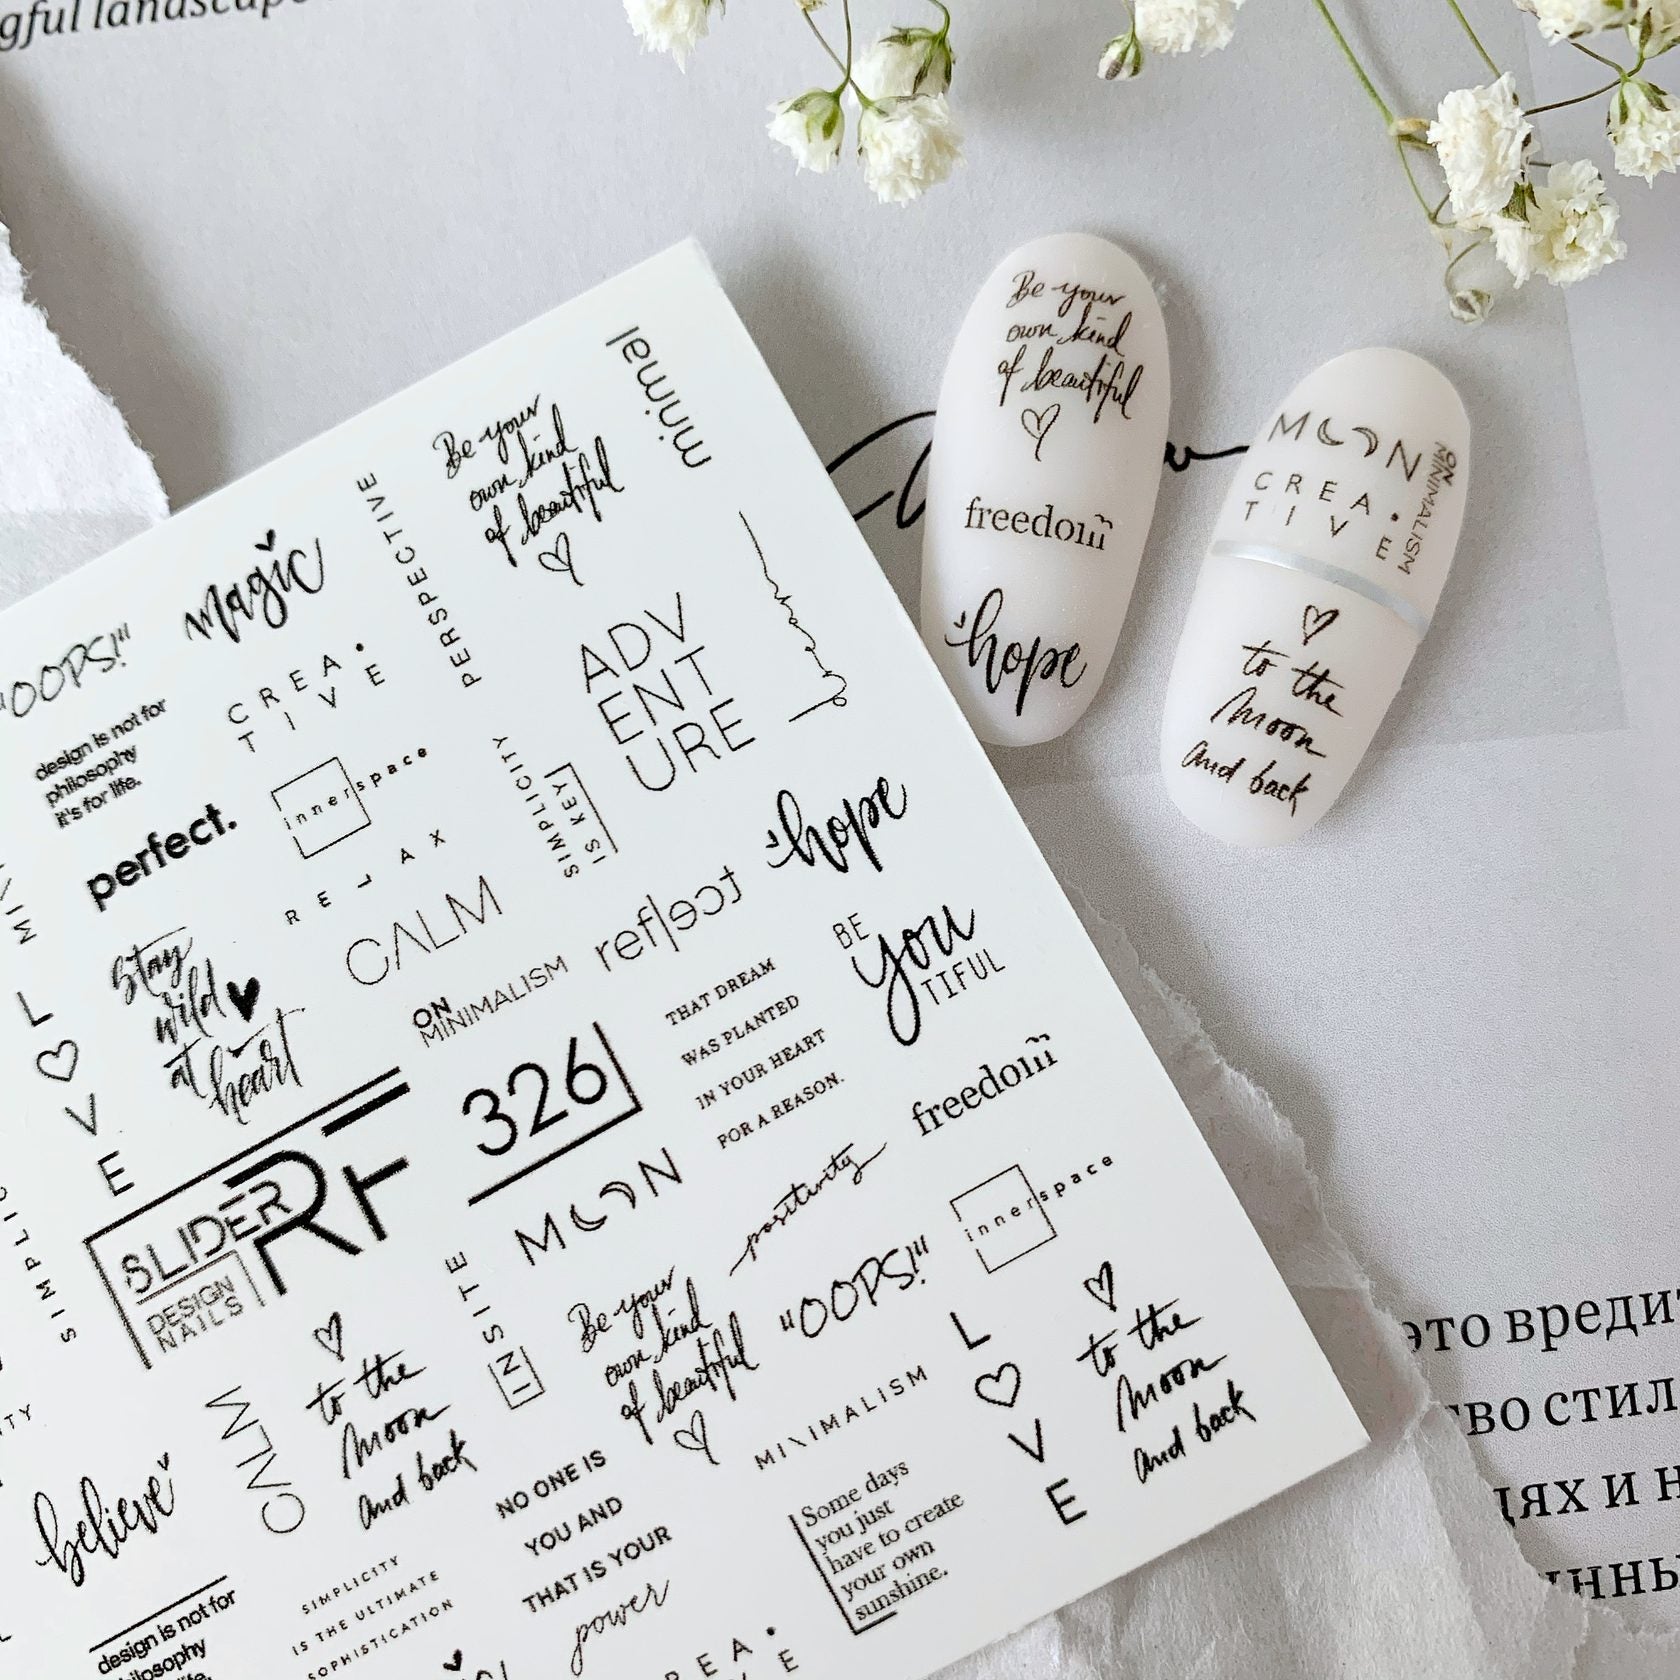 landscape
minimal
Be your
own kind
of beautiful
PERSPECTIVE
magic
"OOPS!"
CREA.
TIVE
ADV
ENT
URE
design is not for
philosophy
it's for life.
innerspace
SIMPLICITY
IS KEY
perfect.
RELAX
CALM
reflect
hope
Stay
wild
at
heart
ON
MINIMALISM
THAT DREAM
WAS PLANTED
IN YOUR HEART
FOR A REASON.
BE
you
TIFUL
L
V
E
326
RF
SLIDER
DESIGN
NAILS
MOON
positivity
freedom
innerspace
INSITE
Be your
own kind
of beautiful
"OOPS!"
to the
moon
and back
CALM
MINIMALISM
L
V
E
to the
moon
and back
believe
NO ONE IS
YOU AND
THAT IS YOUR
power
Some days
you just
have to create
your own
sunshine.
SIMPLICITY
IS THE ULTIMATE
SOPHISTICATION
design is not for
philosophy
Be your
own kind
of beautiful
freedom
hope
MOON
CREA.
TIVE
ON
MINIMALISM
to the
moon
and back
это